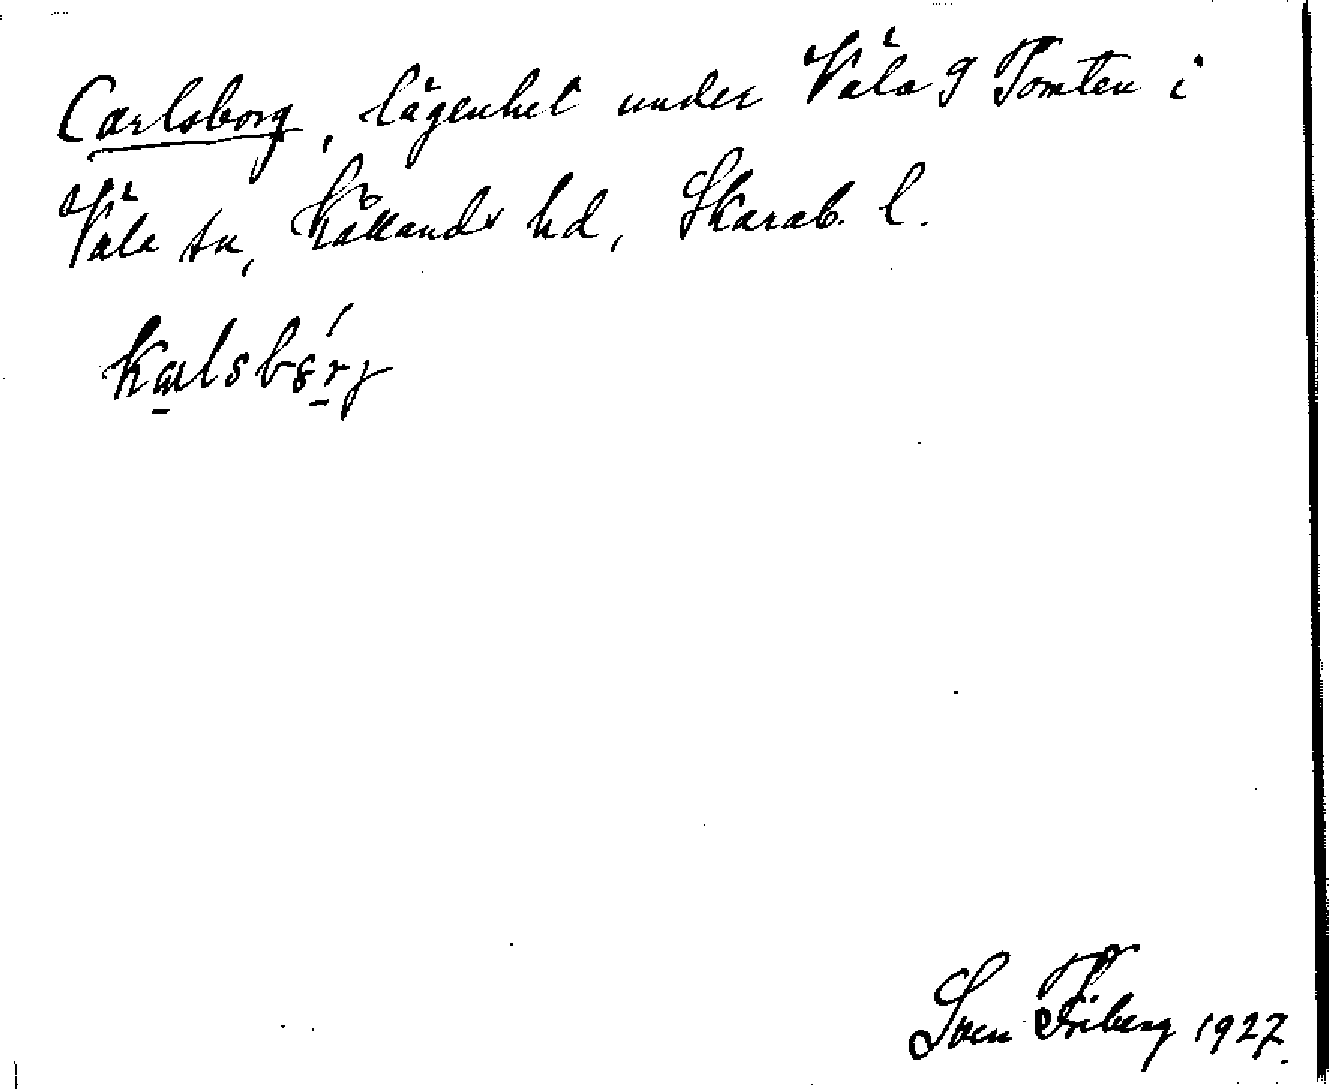 Carlsborg, lägenhet under Väla 9 Tomten i
Väla sn, Kållands hd, Skarab. l.
Karlsbårj
Sven Friberg 1927.